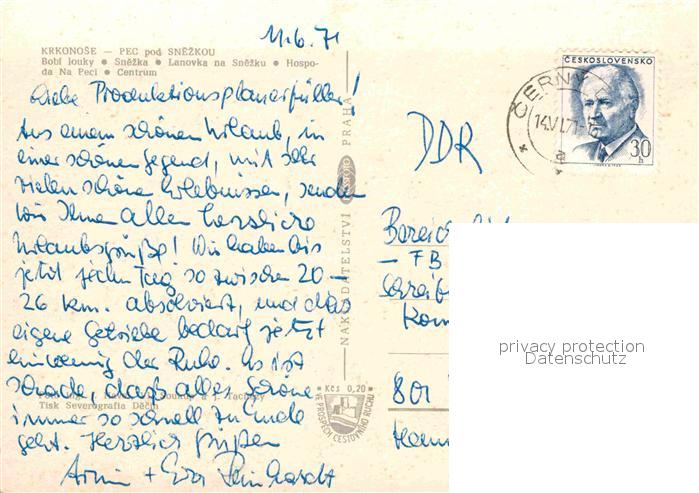 11.6.71
KRKONOŠE – PEC pod SNĚŽKOU
Bobí louky ● Sněžka ● Lanovka na Sněžku ● Hospo-
da Na Peci ● Centrum
Liebe Produktionsplanerfüller!
Aus einem schönen Urlaub, in
einer schönen Gegend, mit sehr
vielen schönen Erlebnissen, senden
wir Ihnen allen herzliche
Urlaubsgrüße! Wir haben bis
jetzt jeden Tag so zwischen 20 –
26 km. absolviert, und das
eigene Getriebe bedarf jetzt
ein wenig der Ruhe. Es ist
schade, daß alles Schöne
immer so schnell zu Ende
geht. Herzlich grüßen
Armin + Eva Reinhardt
Tisk Severografia Děčín
NAKLADATELSTVÍ
PRAHA
Kčs 0,20
VE PROSPĚCH CESTOVNÍHO RUCHU
ČESKOSLOVENSKO
30
h
14.VI.71
DDR
Bereich
– FB
801
privacy protection
Datenschutz